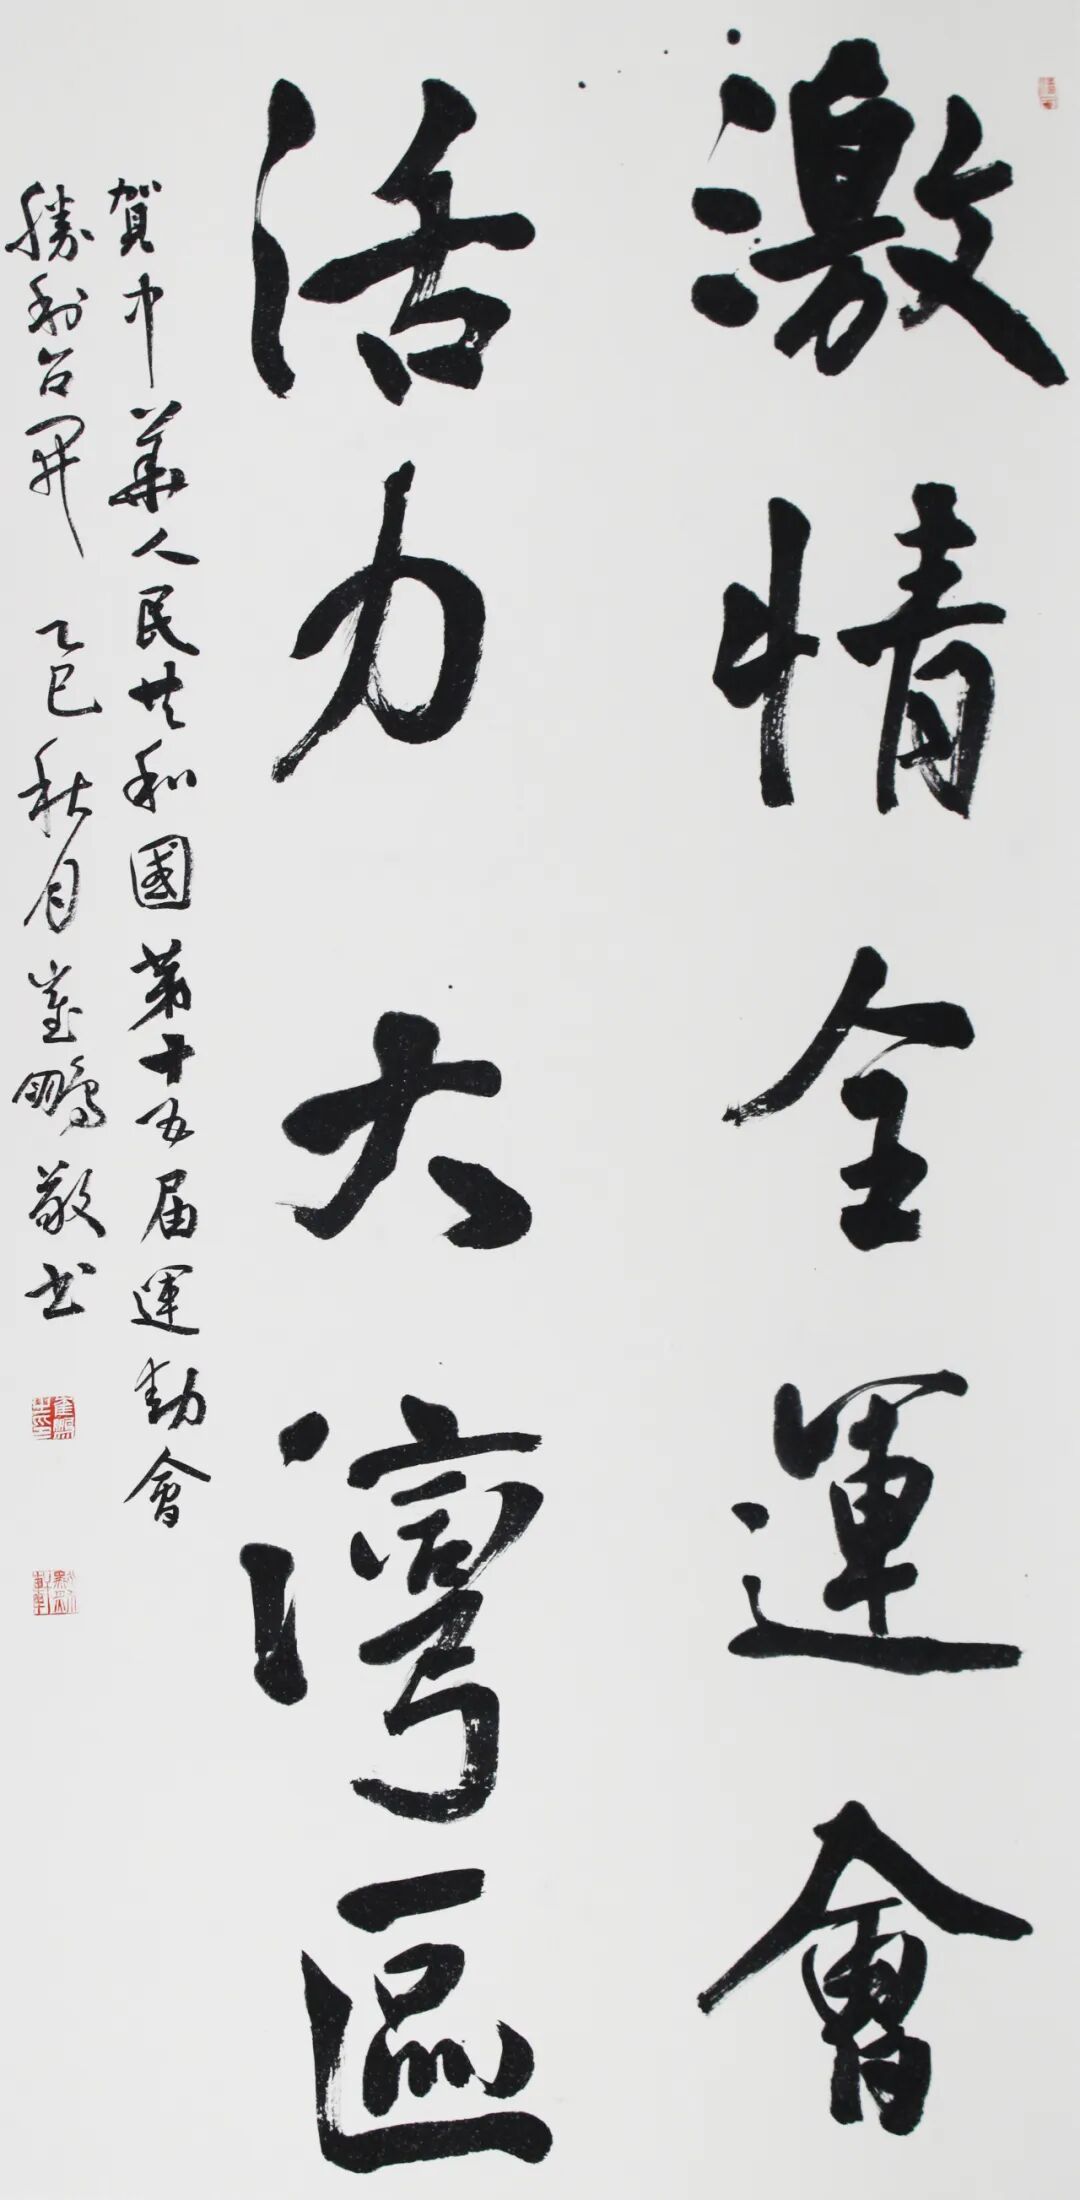 激情全運會
活力大灣區
賀中華人民共和國第十五届運動會
勝利召開 乙巳秋月崔鵬敬书